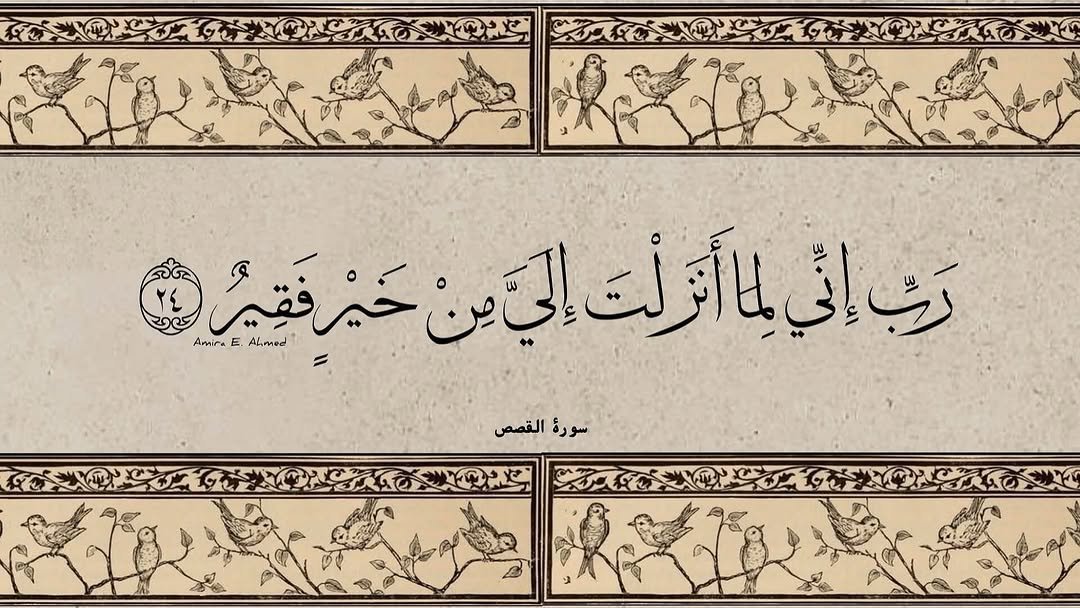 رَبِّ إِنِّي لِمَا أَنزَلْتَ إِلَيَّ مِنْ خَيْرٍ فَقِيرٌ ٢٤
Amira E. Ahmed
سورة القصص